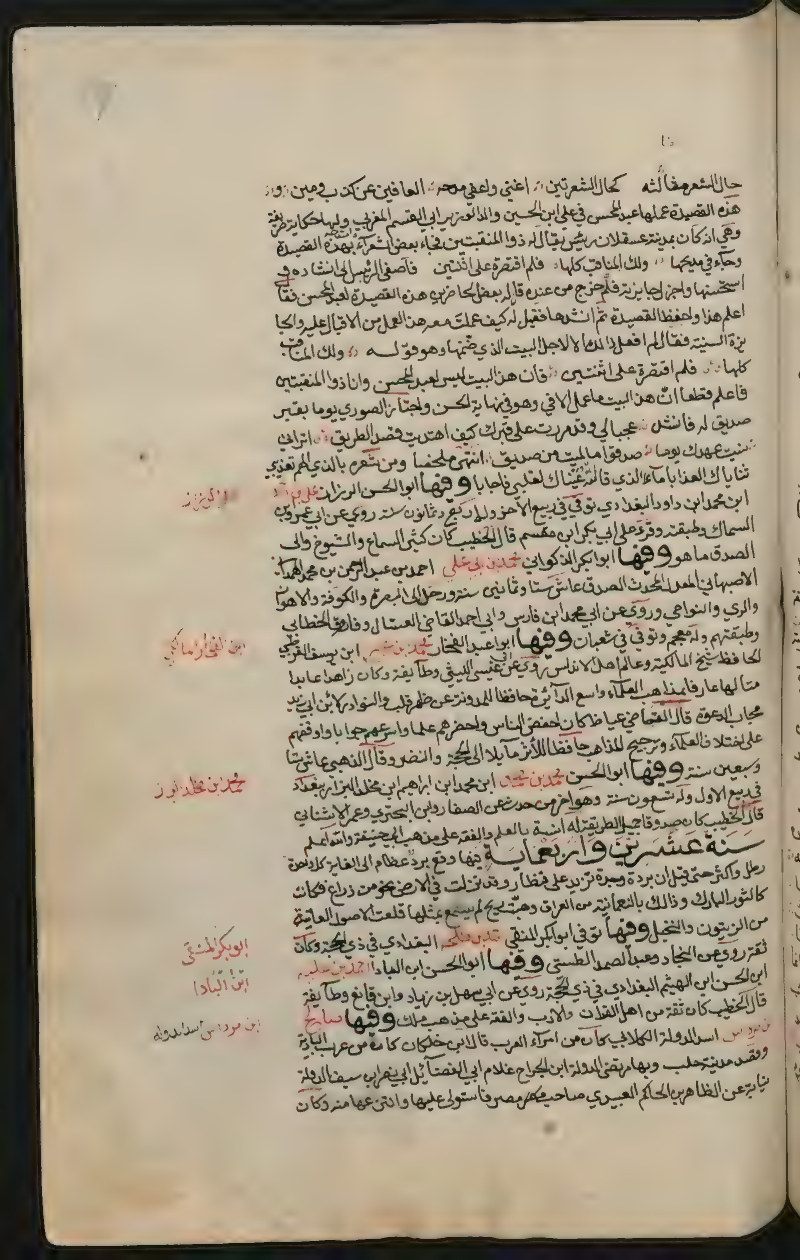 حال الشعر مقالته كحال الشعرتين اغني واعفي مدحه العافين عن كذب ومين
هذه القصيدة عملها عبد المحسن في علي ابن الحسين والد الوزير ابي القسم المغربي ولها حكاية ظريفة
وهي انه كان بمدينة عسقلان رئيس يقال له ذو المنقبتين فجاء بعض الشعراء بهذه القصيدة
وجاء في مديحها ولك المناقب كلها فلم اقتصرة على اثنتين فاصغى الرئيس الى انشاده و
استحسنها واجزل جايزته فلما خرج من عنده قال له بعض الحاضرين هذه القصيدة لعبد المحسن فقال
اعلم هذا واحفظ القصيدة ثم انشدها فقيل له كيف عملت معه هذا العمل من الاقبال عليه والجا
يزة السنية فقال لم افعل ذالك الا لاجل البيت الذي ضمنها وهو قوله ولك المناقب
كلها فلم اقتصرة على اثنتين فان هذا البيت ليس لعبد المحسن وانا ذو المنقبتين
فاعلم قطعا ان هذا البيت ما عمل الا في وهو في نهاية الحسن واجتاز الصوري يوما بقبر
صديق له فانشد عجبا لي وقد مررت على قبرك كيف اهتديت قصد الطريق اتراني
نسيت عهدك يوما صدقوا ما لميت من صديق انتهى ملخصا ومن شعره بالذي الهم تعذيبي
ثناياك العذابا ما الذي قالته عيناك لقلبي فاجابا وفيها ابو الحسن الرزاز علي
ابن محمد ابن داود البغدادي توفي في ربيع الاخر وله اربع وثمانون سنة روى عن ابي عمرو بن
السماك وطبقته وقرء على ابي بكر ابن مقسم قال الخطيب كان كثير السماع والشيوخ والى
الصدق ما هو وفيها ابو بكر الذكواني محمد بن ابي علي احمد بن عبد الرحمن بن محمد الهمداني
الاصبهاني المعدل المحدث الصدق عاش ستا وثمانين سنة ورحل الى البصرة والكوفة والاهواز
والري والنواحي وروى عن ابي محمد ابن فارس وابي احمد القاضي العسال وفاروق الخطابي
وطبقتهم وله معجم وتوفي في شعبان وفيها ابو عبد الفخار محمد بن ابن يوسف القرطبي
الحافظ شيخ المالكية وعالم اهل الاندلس روى عن عيسى الليثي وطايفة وكان زاهدا عابدا
متالها عارفا بمذاهب العلماء واسع الدائرة حافظا للمدونة عن ظهر قلب والنوادر لابن ابي زيد
مجاب الدعوة قال القاضي عياض كان احفظ الناس واحضرهم علما واسرعهم جوابا واوقفهم
على اختلاف العلماء وترجيح المذاهب حافظا للاثر مايلا الى الحجة والنظر وقال الذهبي عاش ستا
وسبعين سنة وفيها ابو الحسن محمد بن محمد ابن محمد ابن ابراهيم ابن مخلد البزاز ببغداد
في ربيع الاول وله تسعون سنة وهو اخر من حدث عن الصفار وابن البختري وعمر الاشناني
قال الخطيب كان صدوقا جميل الطريقة له انسة بالعلم والفقه على مذهب ابي حنيفة والله اعلم
سنة عشرين واربعماية فيها وقع برد عظام الى الغاية كل واحدة
رطل واكثر حتى قيل ان بردة وجدت تزيد على قنطار وقد نزلت في الارض نحو من ذراع فكانت
كالثور البارك وذالك بالنعمانية من العراق وهبت ريح لم يسمع بمثلها قلعت الاصول العاتية
من الزيتون والنخيل وفيها توفي ابو بكر المنقي احمد بن طلحة البغدادي في ذي الحجة وكان
ثقة روى عن النجاد وعبد الصمد الطستي وفيها ابو الحسن ابن البادا احمد بن علي
ابن الحسن ابن الهيثم البغدادي في ذي الحجة روى عن ابي سهل بن زياد وابن قانع وطايفة
قال الخطيب كان ثقة من اهل القران والادب والفقه على مذهب ملك وفيها صالح
بن مرداس اسد الدولة الكلابي كان من امراء العرب قال ابن خلكان كان من عرب البادية
وقصد مدينة حلب وبها مرتضى الدولة ابن الجراح غلام ابي الفضائل ابي نصر ابن سيف الدولة
نيابة عن الظاهر بن الحاكم العبيدي صاحب مصر فاستولى عليها وانتزعها منه وكان
ابن الفخار المالكي
محمد بن مخلد البزاز
ابو بكر المنقي
ابن البادا
ابن مرداس اسد الدولة